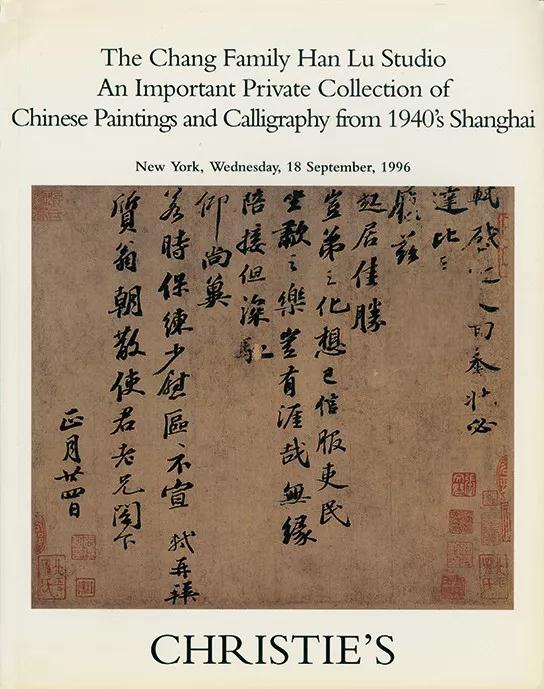 The Chang Family Han Lu Studio
An Important Private Collection of
Chinese Paintings and Calligraphy from 1940's Shanghai
New York, Wednesday, 18 September, 1996
軾啟近人回奉狀必
達比日
履茲
起居佳勝
豈弟之化想已信服吏民
坐歗之樂豈有涯哉無緣
陪接但深馳
仰尚冀
若時保練少慰區區不宣 軾再拜
質翁朝散使君老兄閣下
正月廿四日
CHRISTIE'S